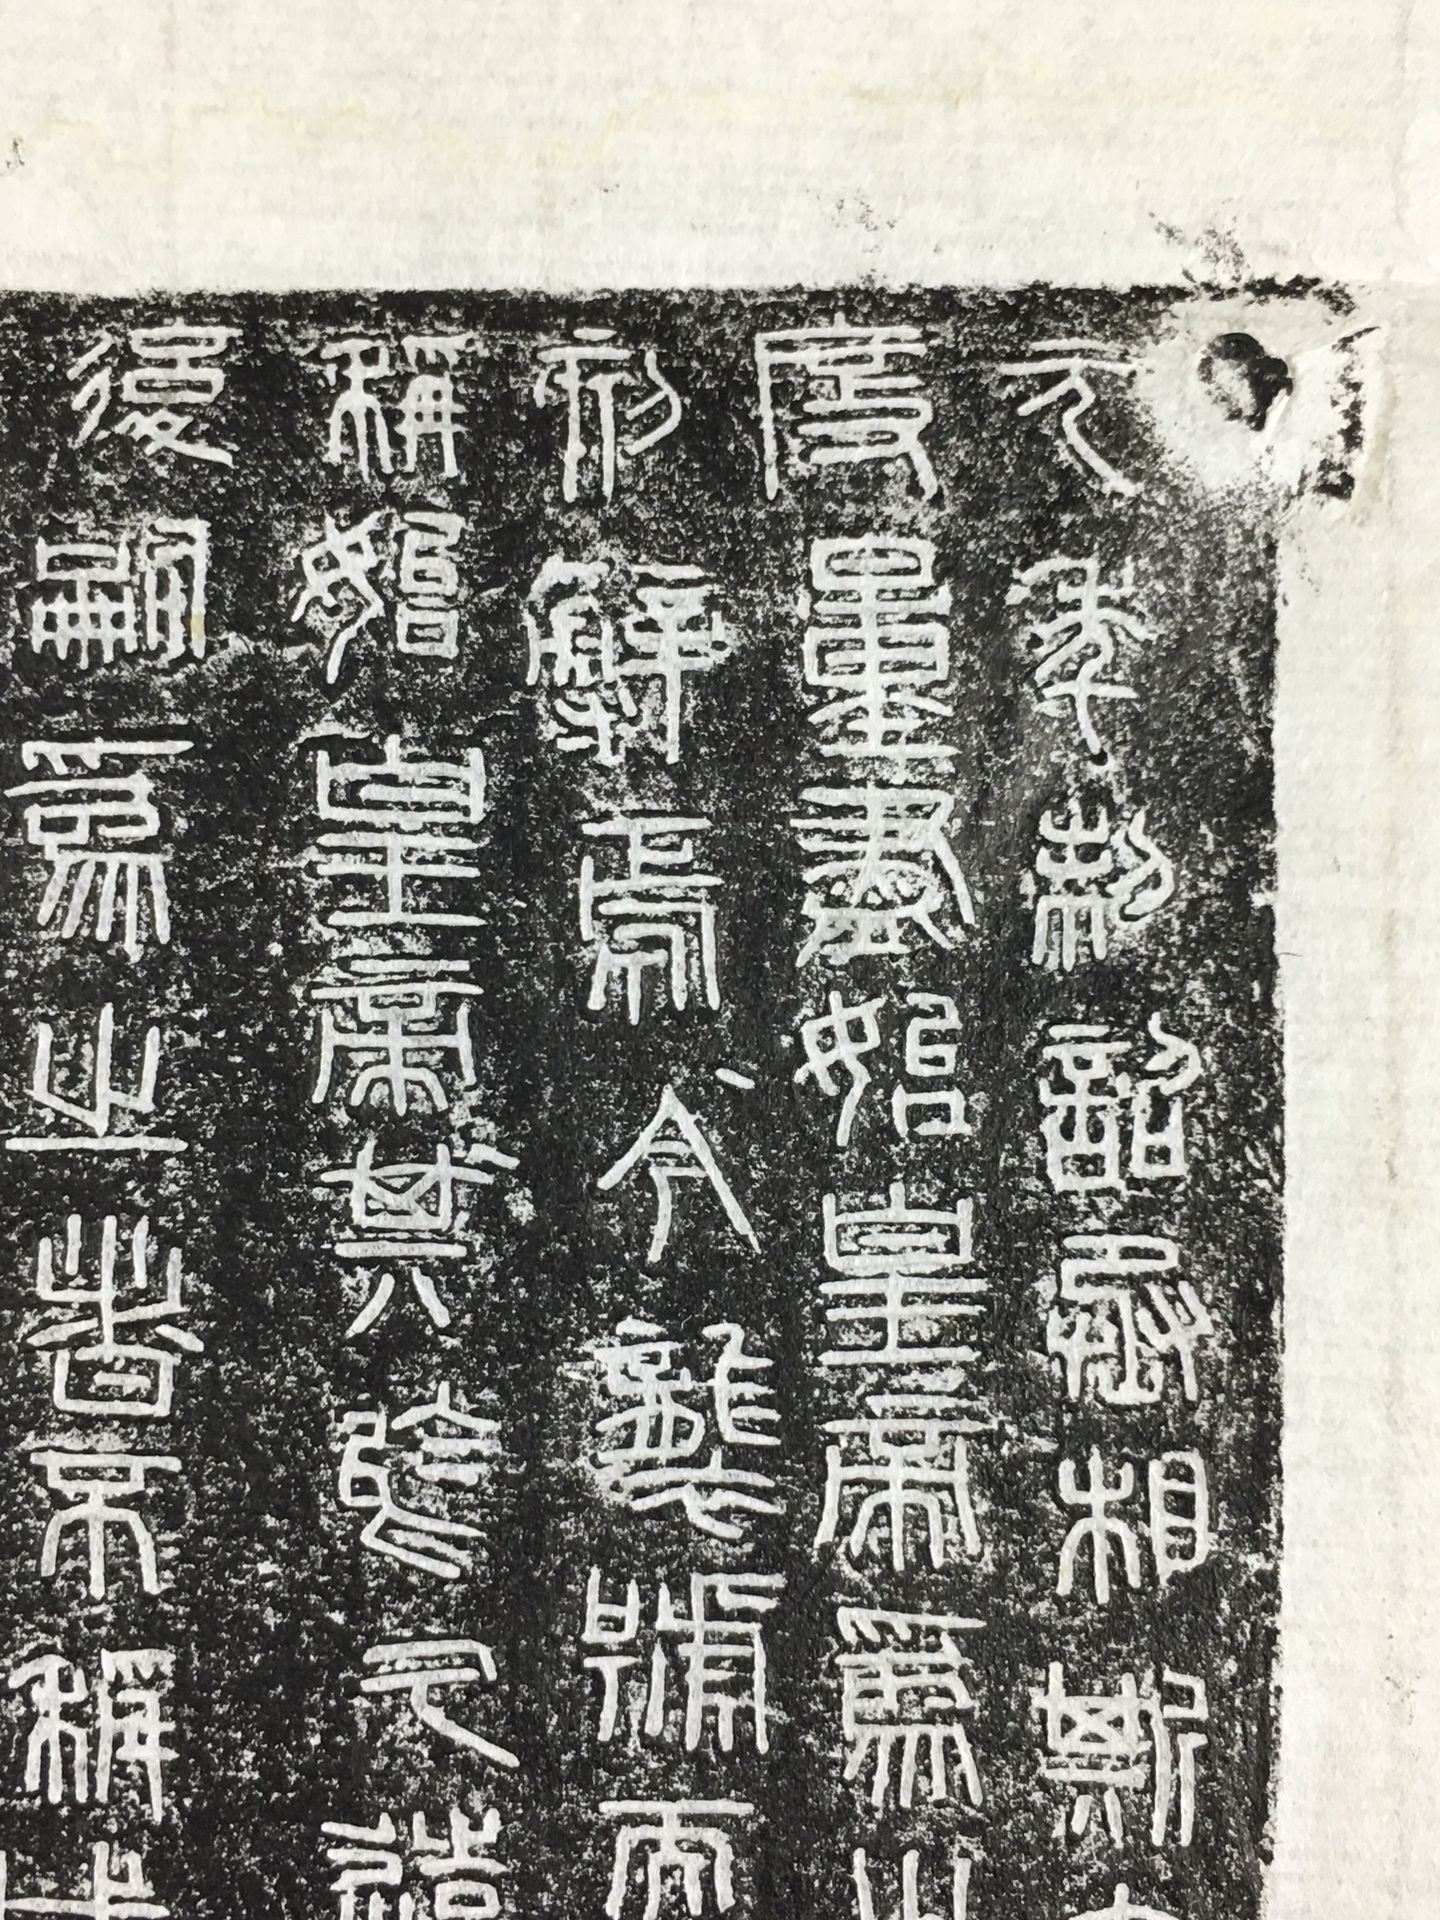 元年制詔丞相斯
度量盡始皇帝爲之
刻辭焉今襲號而
稱始皇帝其於久遠
後嗣爲之者不稱